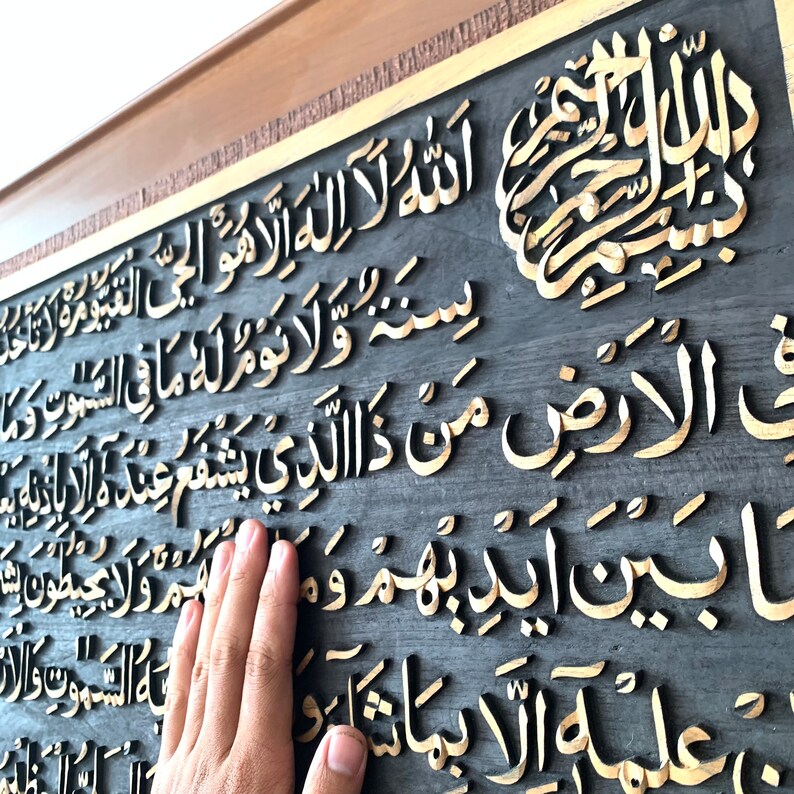 بِسْمِ اللهِ الرَّحْمٰنِ الرَّحِيْمِ
اَللهُ لَآ اِلٰهَ اِلَّا هُوَۚ اَلْحَيُّ الْقَيُّوْمُ ەۚ لَا تَأْخُذُ
سِنَةٌ وَّلَا نَوْمٌۗ لَهٗ مَا فِى السَّمٰوٰتِ وَمَا
فِى الْاَرْضِۗ مَنْ ذَا الَّذِيْ يَشْفَعُ عِنْدَهٗٓ اِلَّا بِاِذْنِهٖۗ يَعْ
مَا بَيْنَ اَيْدِيْهِمْ وَمَا خَلْفَهُمْۚ وَلَا يُحِيْطُوْنَ بِشَ
مِّنْ عِلْمِهٖٓ اِلَّا بِمَا شَآءَۚ وَ السَّمٰوٰتِ وَالْاَرْ